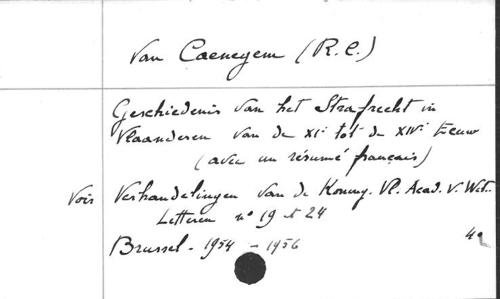 Van Caenegem (R.C.)
Geschiedenis van het Strafrecht in
Vlaanderen van de XIe tot de XIVe Eeuw
(avec un résumé français)
Voir Verhandelingen van de Koning. Vl. Acad. v. Wet.
Letteren n° 19 et 24
Brussel - 1954 - 1956